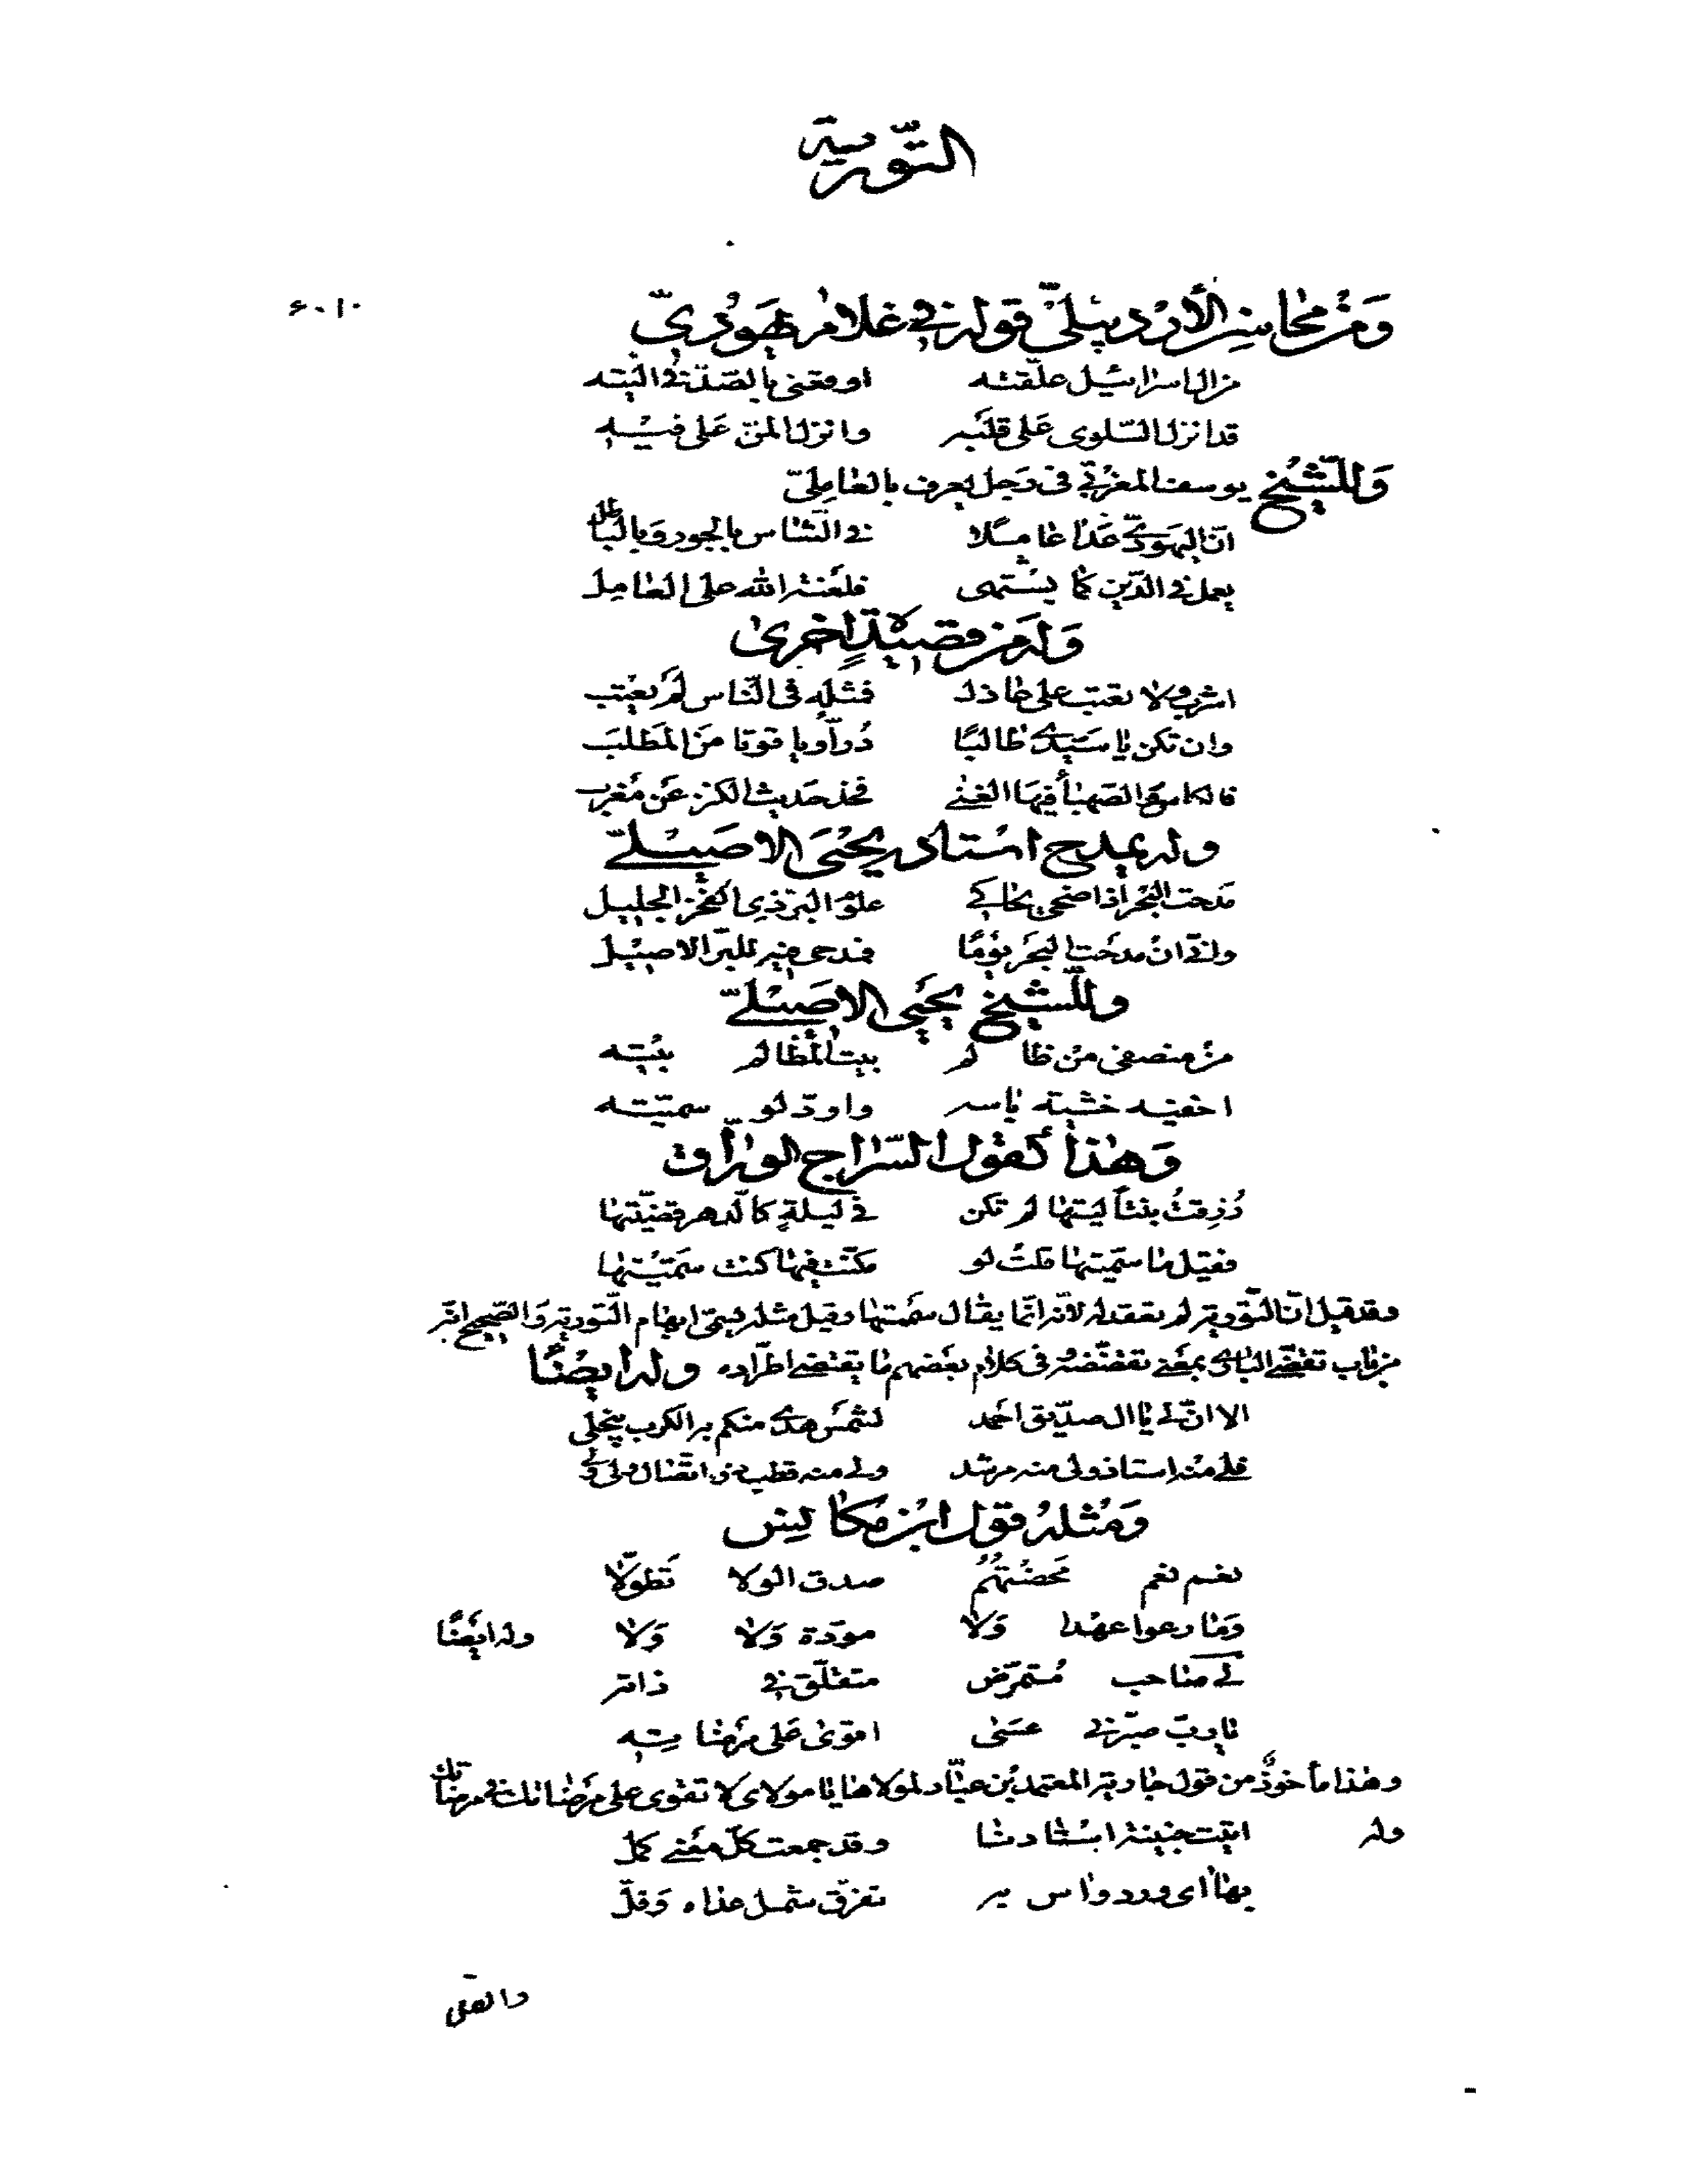 التورية
ومن محاسن الأردبيلي قوله في غلام يهودي
من ال اسرائيل علقته اوقعني بالصد في التيه
قد انزل السلوى على قلبه وانزل المن على فيه
وللشيخ يوسف المغربي في رجل يعرف بالعاملي
ان اليهودي غدا عاملا في الناس بالجور وبالباطل
يعمل في الدين كما يشتهى فلعنة الله على العامل
وله من قصيدة اخرى
اشرب ولا تعتب على عاذل فمثله في الناس لم يعتب
وان تكن يا سيدي طالبا درا وياقوتا من المطلب
فالكاس والصهبا فيها الغنى فخذ حديث الكنز عن مغرب
وله يمدح استاده يحيى الاصيلي
مدحت البحر اذ اضحى يحاكي علوم البر ذي الفخر الجليل
واني ان مدحت البحر يوما فمدحى فيه للبر الاصيل
وللشيخ يحيى الاصيلي
من منصفى من ظالم بيت المظالم بيته
اخفيه خشية باسه واود لو سميته
وهذا كقول السراج الوراق
رزقت بنتا ليتها لم تكن في ليلة كالدهر قضيتها
فقيل ما سميتها قلت لو مكنت فيها كنت سميتها
وقد قيل ان التورية لم تعقد له لانه انما يقال سممتها وقيل مثله يسمى ايهام التورية والصحيح انه
من باب تقضي البازي بمعنى تقضضه وفي كلام بعضهم ما يقتضى اطراده وله ايضا
الا ان لي يا ال صديق احمد لشمس هدى منكم بر الكرب ينجلي
فلي منه استاذ ولى منه مرشد ولى منه قطب ذو اتصال ولى ولي
ومثله قول ابن مكانس
نعم نعم محضتهم صدق الولا تطولا
وما رعوا عهدا ولا مودة ولا ولا وله ايضا
لي صاحب مستمرض متغلق في ذاته
يا رب صبرني عسى اقوى على مرضاته
وهذا مأخوذ من قول جارية المعتمد بن عباد لمولاها يا مولاى لا تقوى على مرضاتك في مرضاتك
وله اتيت جنينة استادنا وقد جمعت كل معنى كمل
بها اي ورد واس به تفرق شمل عداه وقل